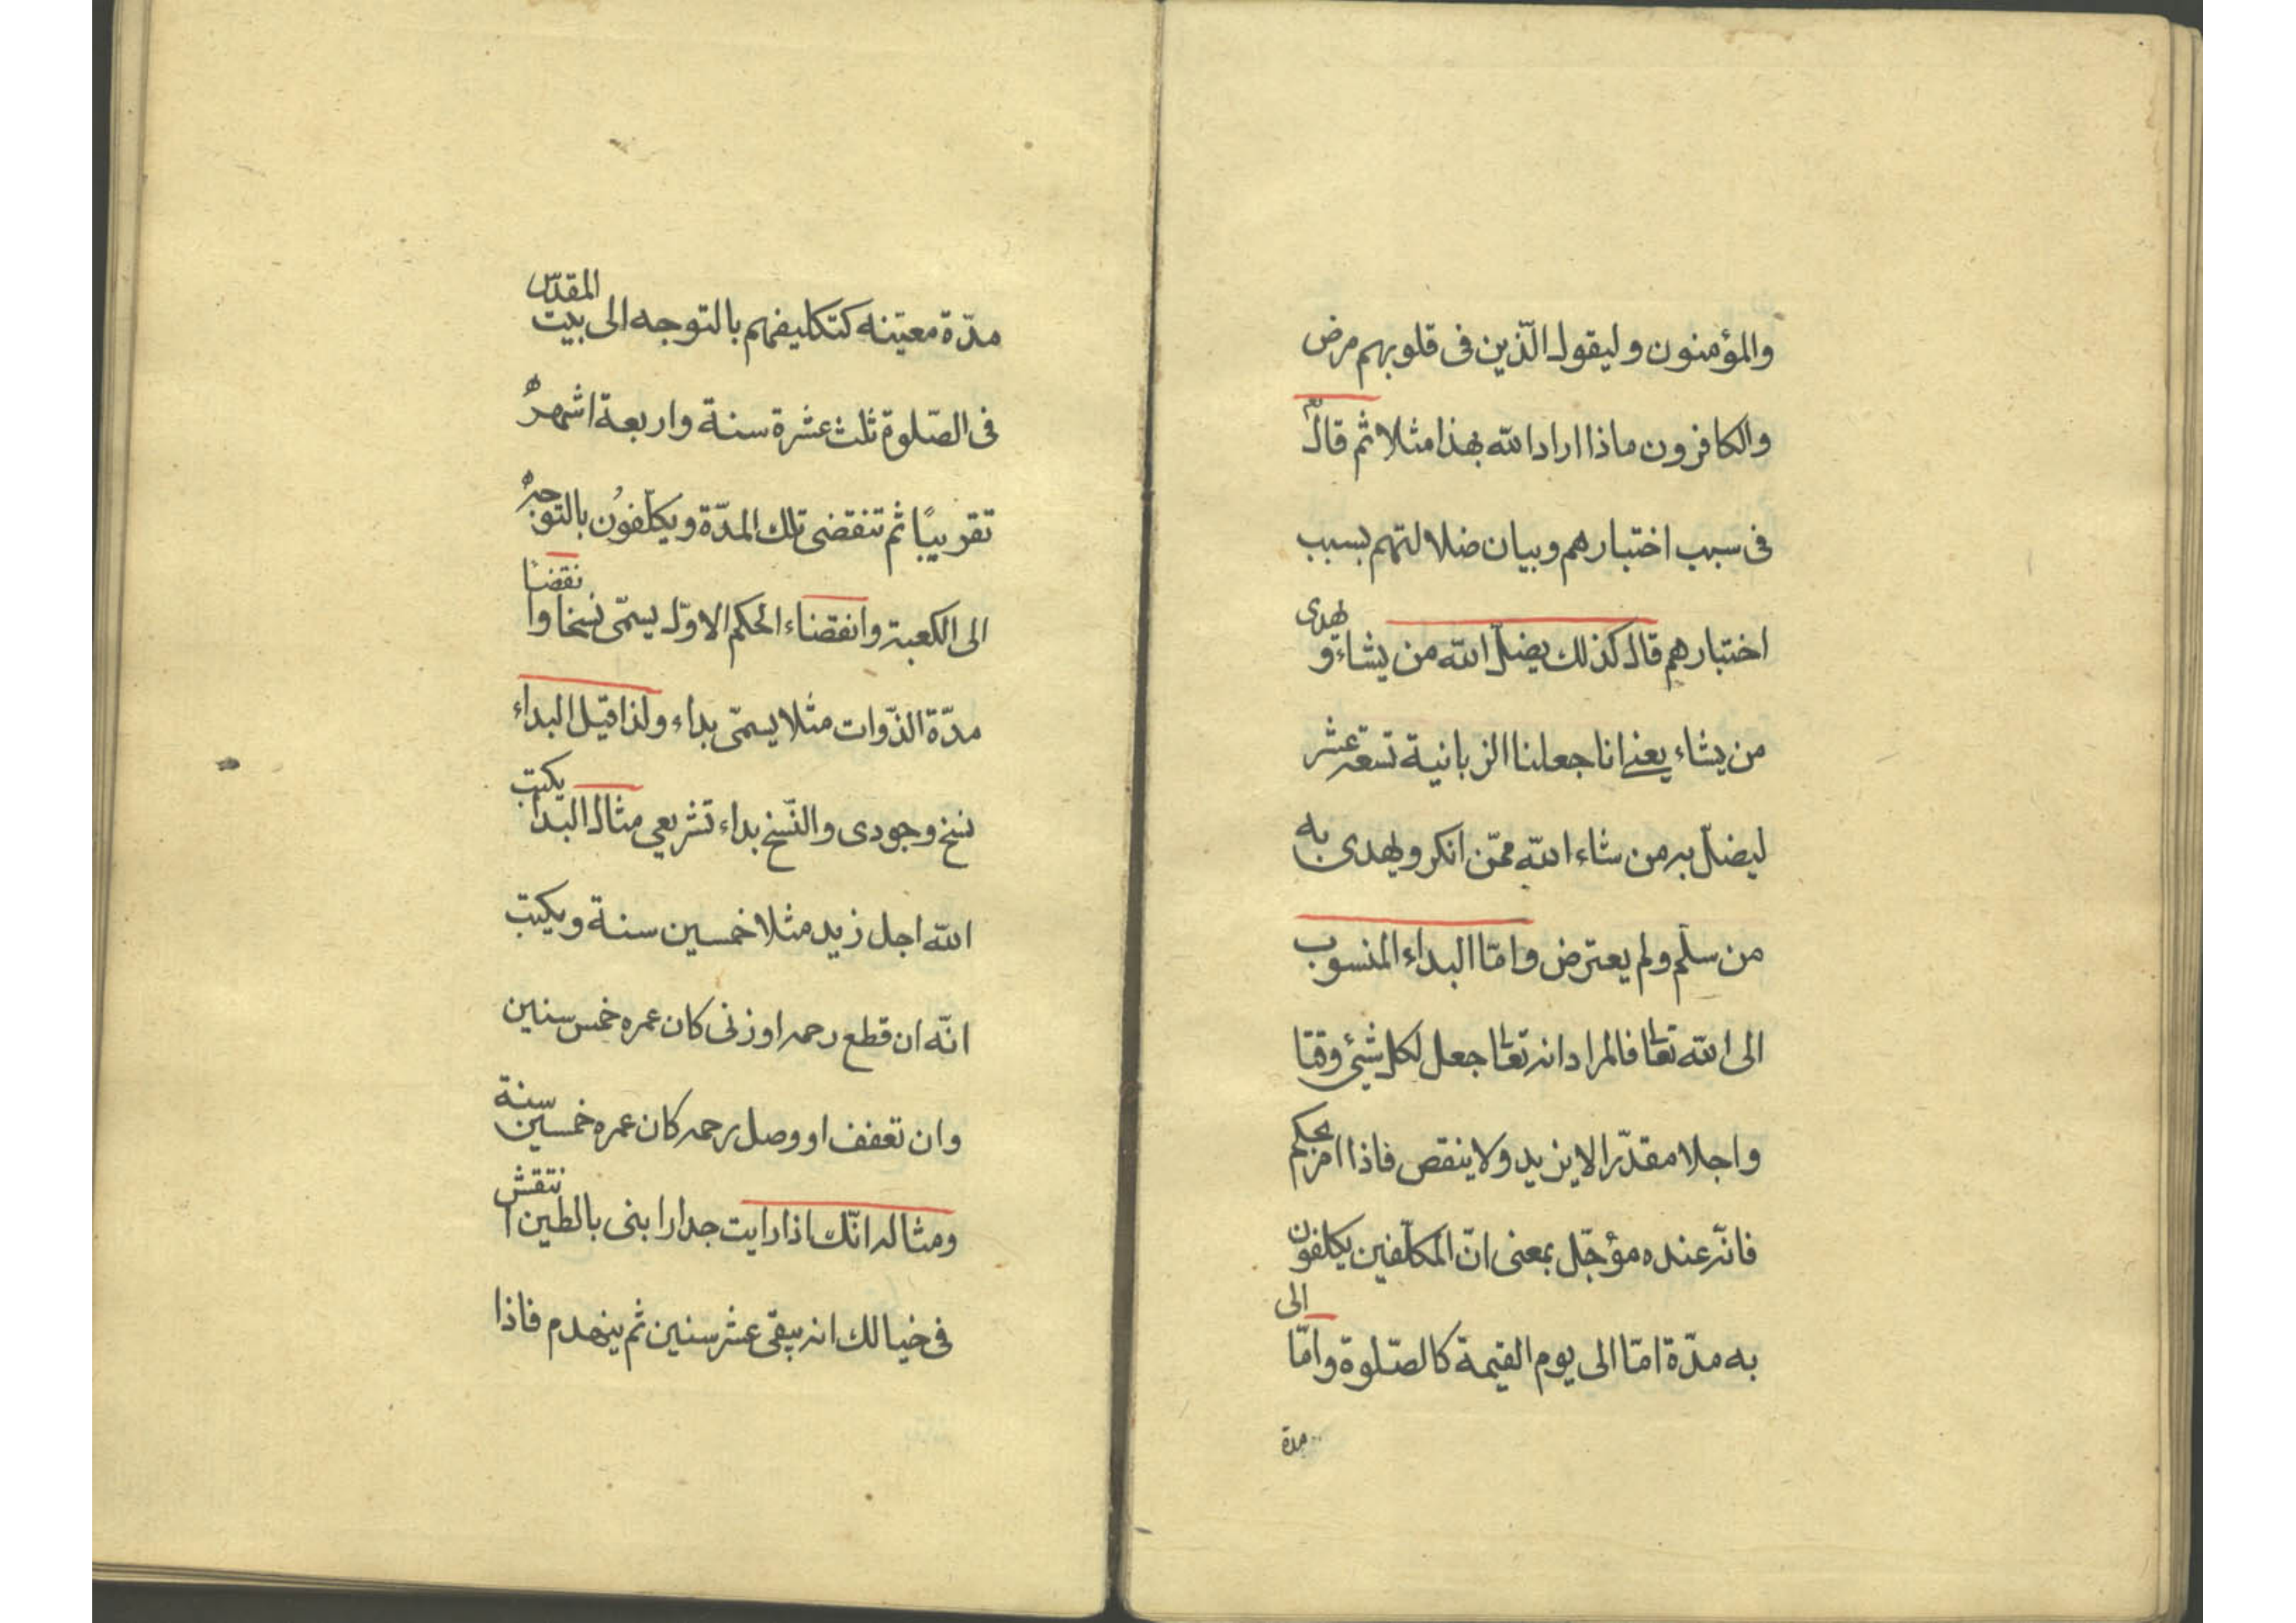 والمؤمنون وليقول الّذين فى قلوبهم مرض
والكافرون ماذا اراد الله بهذا مثلا ثم قال
فى سبب اختبارهم وبيان ضلالتهم بسبب
اختبارهم قال كذلك يضلّ الله من يشاء ويهدى
من يشاء يعنى انا جعلنا الزبانية تسعة عشر
ليضلّ به من شاء الله ممّن انكر ويهدى به
من سلّم ولم يعترض وامّا البداء المنسوب
الى الله تعا فالمراد انه تعا جعل لكل شيئ وقتا
واجلا مقدّرا لا يزيد ولا ينقص فاذا امر بحكم
فانّه عنده مؤجّل بمعنى انّ المكلّفين يكلفون
به مدّة امّا الى يوم القيمة كالصّلوة وامّا الى
مدة
مدّة معيّنه كتكليفهم بالتوجه الى بيت المقدّس
فى الصّلوة ثلث عشرة سنة واربعة اشهر
تقريبًا ثم تنقضى تلك المدّة ويكلّفون بالتوجه
الى الكعبة وانقضاء الحكم الاوّل يسمّى نسخا وانقضا
مدّة الذّوات مثلا يسمّى بداء ولذا قيل البداء
نسخ وجودى والنّسخ بداء تشريعي مثال البدا يكتب
الله اجل زيد مثلا خمسين سنة ويكتب
انّه ان قطع رحمه او زنى كان عمره خمس سنين
وان تعفف او وصل رحمه كان عمره خمسين سنة
ومثاله انّك اذا رايت جدارا بنى بالطين انتقش
فى خيالك انه يبقى عشر سنين ثم ينهدم فاذا